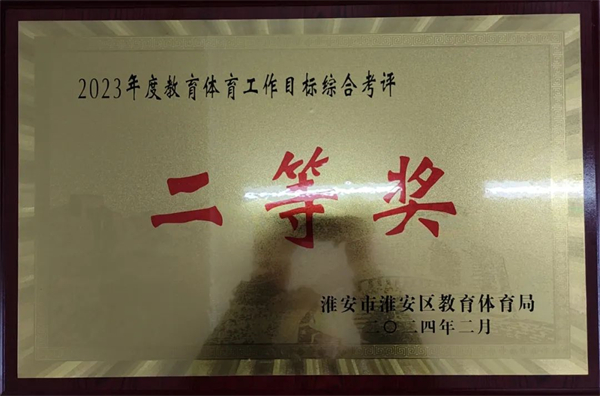 2023年度教育体育工作目标综合考评
二等奖
淮安市淮安区教育体育局
二〇二四年二月